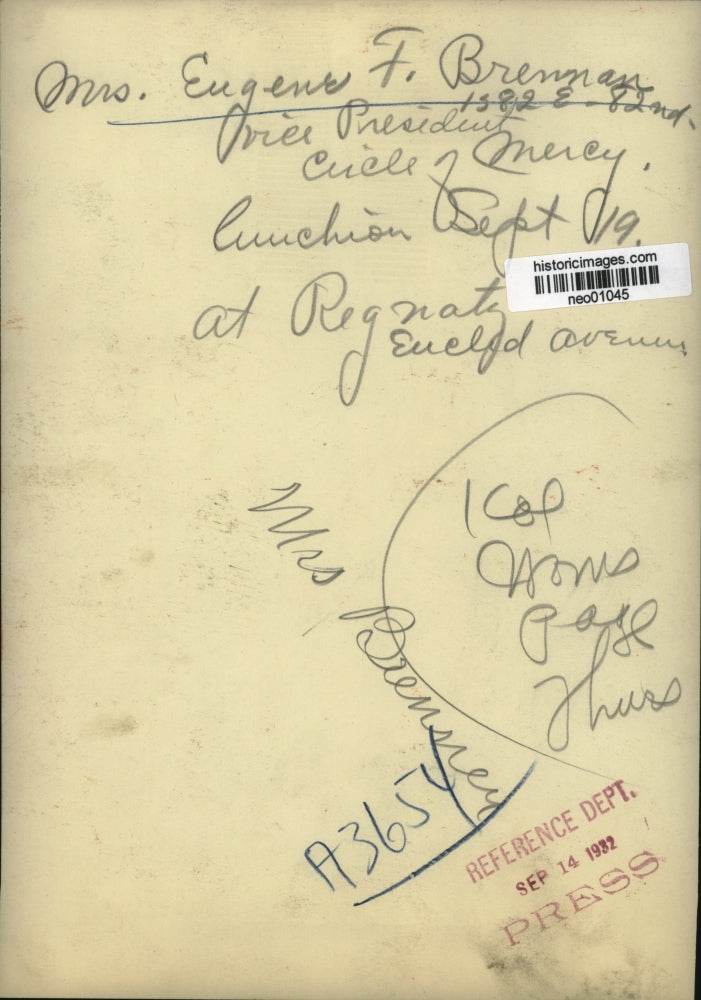 Mrs. Eugene F. Brennan
1582 E - 82nd.
Vice President
Circle of Mercy.
Lunchion Sept 19.
at Regnatz
Euclid avenue
historicimages.com
neo01045
1 Col
Woms
Page
Thurs
Mrs Brennan
A3654
REFERENCE DEPT.
SEP 14 1932
PRESS